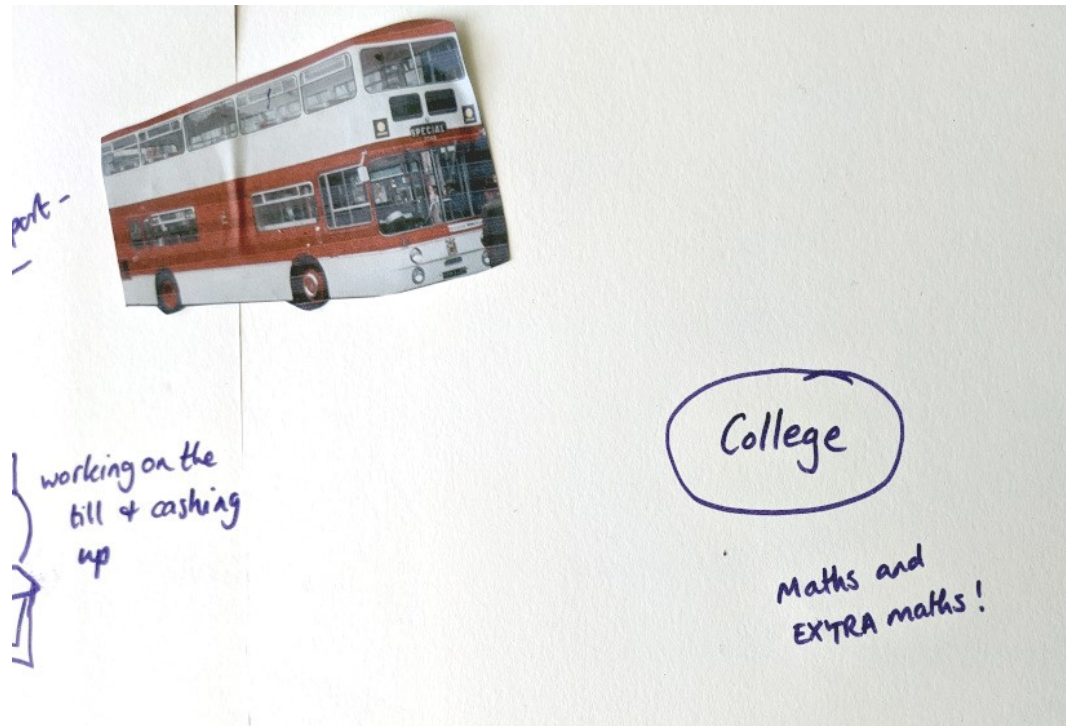 SPECIAL
port -
working on the
till & cashing
up
College
Maths and
EXTRA maths!